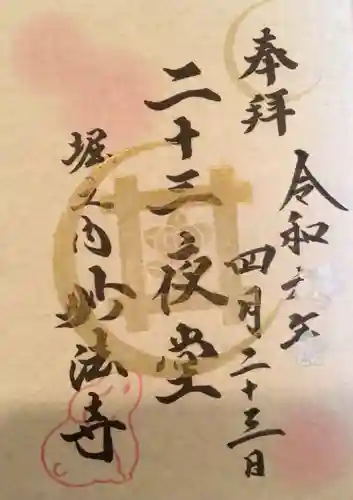 奉拝
令和六年
四月二十三日
二十三夜堂
堀之内妙法寺